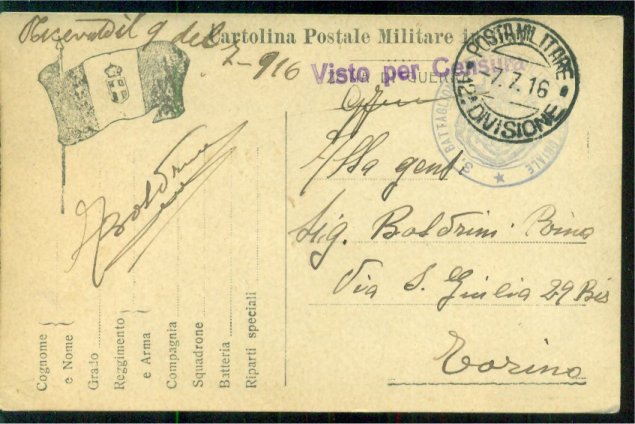 Ricevuta il 9 del
7-916
Cartolina Postale Militare in
ZONA DI GUERRA
Visto per Censura
POSTA MILITARE
-7.7.16
22ª DIVISIONE
3. BATTAGLIO
Alla gent.
Sig. Boldrini
Via S. Giulia 29 Bis
Torino
Boldrini
Cognome
e Nome
Grado
Reggimento
e Arma
Compagnia
Squadrone
Batteria
Riparti speciali